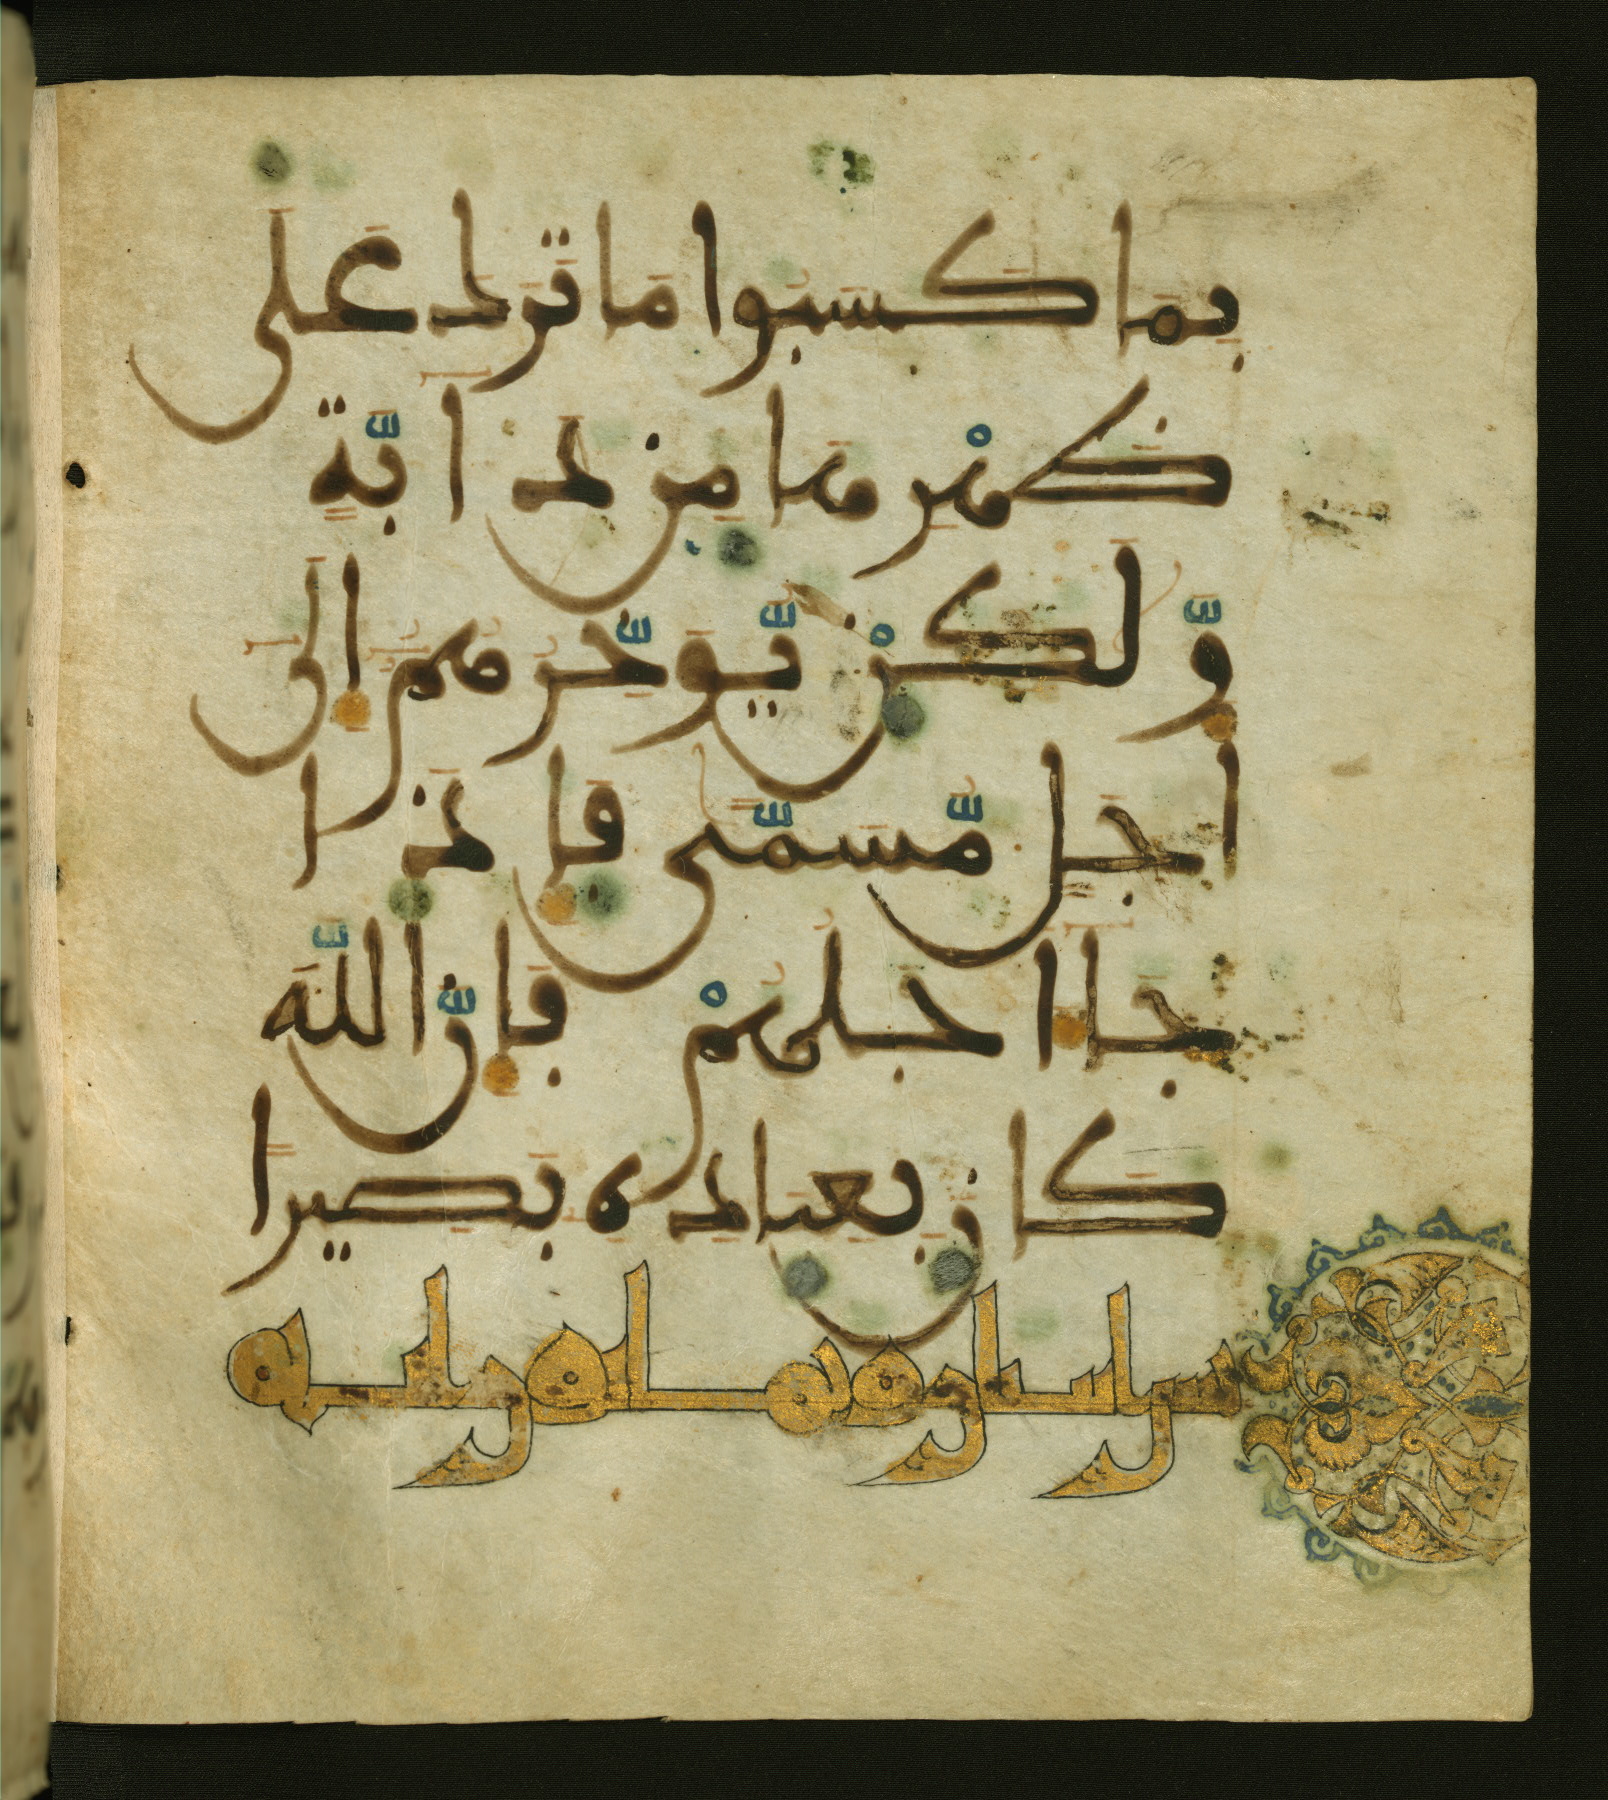 بِمَا كَسَبُوا مَا تَرَكَ عَلَى
ظَهْرِهَا مِن دَابَّةٍ
وَّلَكِنْ يُّوَخِّرُهُمُ إِلَى
أَجَلٍ مُّسَمًّى فَإِذَا
جَا أَجَلُهُمْ فَإِنَّ اللَّهَ
كَانَ بِعِبَادِهِ بَصِيرًا
يس اثنان وثمانون اية